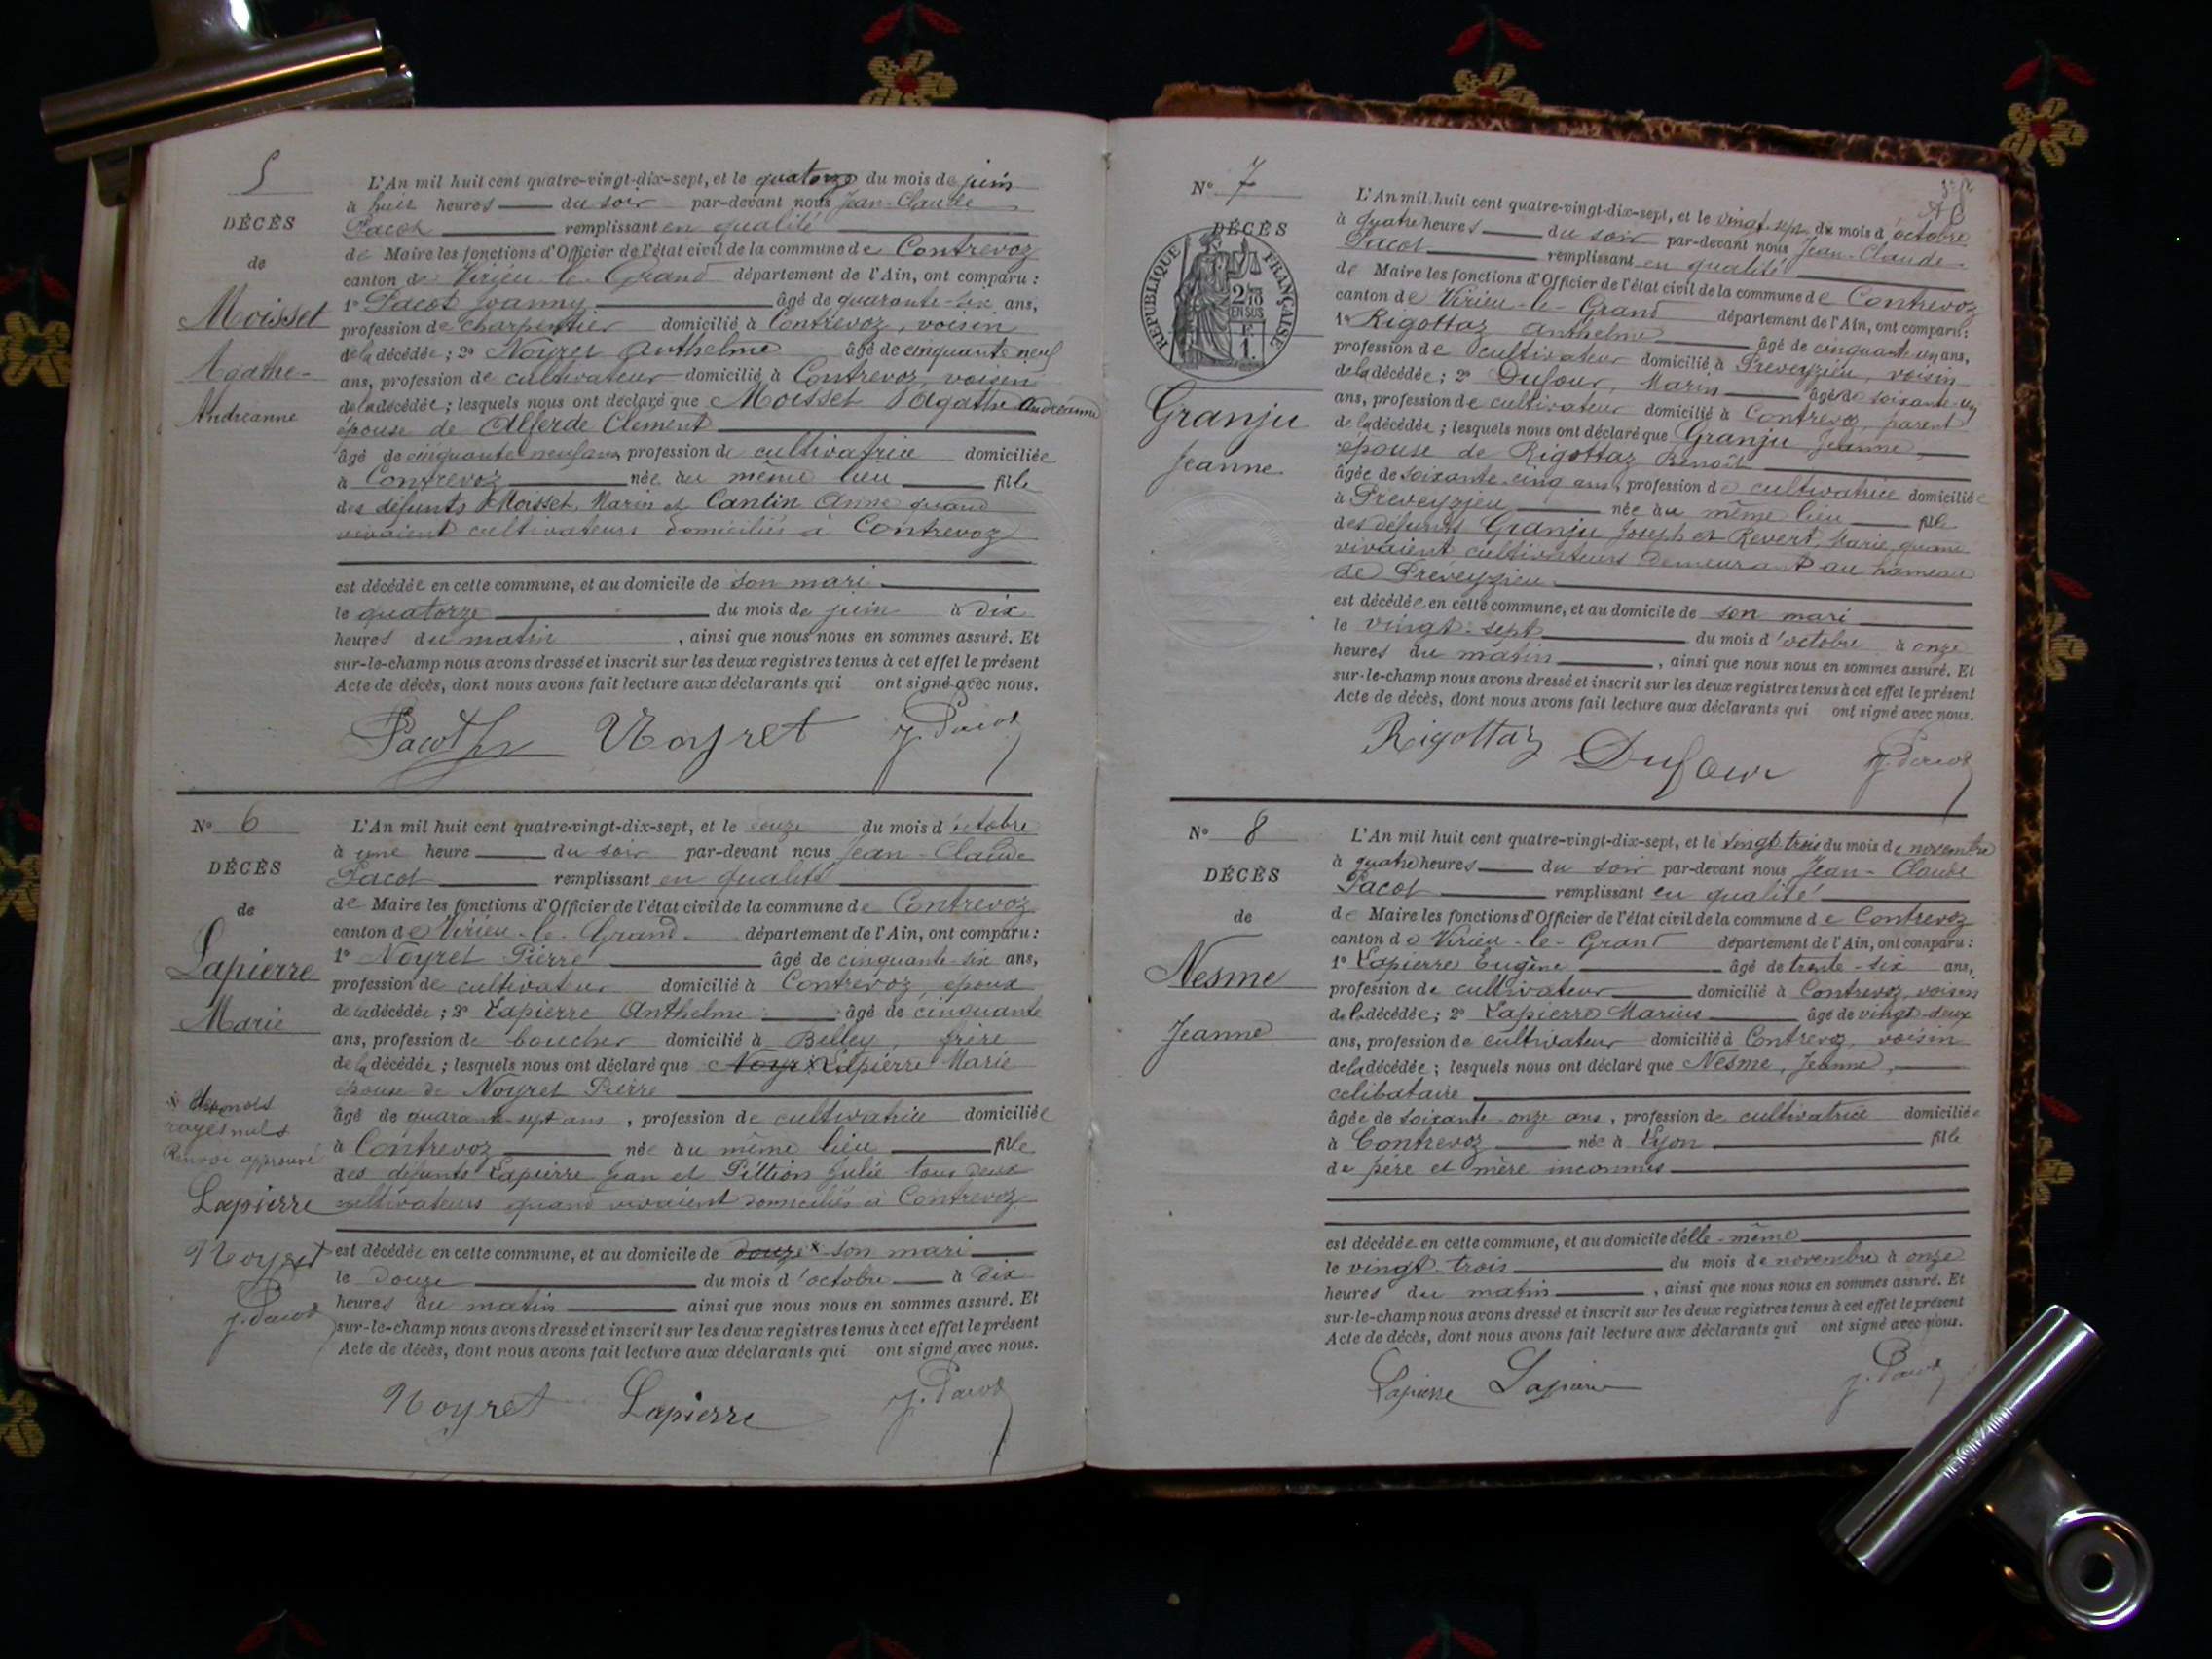 5
DÉCÈS
de
Moisset
Agathe-
Andréanne
L'An mil huit cent quatre-vingt-dix-sept, et le quatorze du mois de juin
à huit heures du soir par-devant nous Jean-Claude
Pacot remplissant en qualité
de Maire les fonctions d'Officier de l'état civil de la commune de Contrevoz
canton de Virieu-le-Grand département de l'Ain, ont comparu :
1° Pacot Joanny âgé de quarante-six ans,
profession de charpentier domicilié à Contrevoz, voisin
de la décédée ; 2° Noyret Anthelme âgé de cinquante neuf
ans, profession de cultivateur domicilié à Contrevoz, voisin
de la décédée ; lesquels nous ont déclaré que Moisset Agathe Andréanne
épouse de Alferde Clément
âgé de cinquante neuf ans, profession de cultivatrice domiciliée
à Contrevoz née au même lieu fille
des défunts Moisset, Marin et Cantin Anne quand
vivaient cultivateurs domiciliés à Contrevoz
est décédée en cette commune, et au domicile de son mari
le quatorze du mois de juin à dix
heures du matin , ainsi que nous nous en sommes assuré. Et
sur-le-champ nous avons dressé et inscrit sur les deux registres tenus à cet effet le présent
Acte de décès, dont nous avons fait lecture aux déclarants qui ont signé avec nous.
Noyret J. Pacot
N° 6
DÉCÈS
de
Lapierre
Marie
rayés nuls
Renvoi approuvé
Lapierre
Noyret
J. Pacot
L'An mil huit cent quatre-vingt-dix-sept, et le douze du mois d'octobre
à une heure du soir par-devant nous Jean-Claude
Pacot remplissant en qualité
de Maire les fonctions d'Officier de l'état civil de la commune de Contrevoz
canton de Virieu-le-Grand département de l'Ain, ont comparu :
1° Noyret Pierre âgé de cinquante-six ans,
profession de cultivateur domicilié à Contrevoz, époux
de la décédée ; 2° Lapierre Anthelme âgé de cinquante
ans, profession de boucher domicilié à Belley, frère
de la décédée ; lesquels nous ont déclaré que Noyr x Lapierre Marie
épouse de Noyret Pierre
âgé de quarante-sept ans , profession de cultivatrice domiciliée
à Contrevoz née au même lieu fille
des défunts Lapierre Jean et Pittion Julie tous deux
cultivateurs quand vivaient domiciliés à Contrevoz
est décédée en cette commune, et au domicile de douze x son mari
le douze du mois d'octobre à dix
heures du matin ainsi que nous nous en sommes assuré. Et
sur-le-champ nous avons dressé et inscrit sur les deux registres tenus à cet effet le présent
Acte de décès, dont nous avons fait lecture aux déclarants qui ont signé avec nous.
Noyret Lapierre J. Pacot
N° 7
DÉCÈS
RÉPUBLIQUE FRANÇAISE
2/10 EN SUS
1 F.
Granju
Jeanne
L'An mil huit cent quatre-vingt-dix-sept, et le vingt-sept du mois d'octobre
à quatre heures du soir par-devant nous Jean-Claude
Pacot remplissant en qualité
de Maire les fonctions d'Officier de l'état civil de la commune de Contrevoz
canton de Virieu-le-Grand département de l'Ain, ont comparu :
1° Rigottaz Anthelme âgé de cinquante un ans,
profession de cultivateur domicilié à Préveyzieu, voisin
de la décédée ; 2° Dufour, Marin âgé de soixante-un
ans, profession de cultivateur domicilié à Contrevoz, parent
de la décédée ; lesquels nous ont déclaré que Granju Jeanne,
épouse de Rigottaz Benoît
âgée de soixante-cinq ans, profession de cultivatrice domiciliée
à Préveyzieu née au même lieu fille
des défunts Granju Joseph et Revert, Marie quand
vivaient cultivateurs demeurant au hameau
de Préveyzieu
est décédée en cette commune, et au domicile de son mari
le vingt-sept du mois d'octobre à onze
heures du matin , ainsi que nous nous en sommes assuré. Et
sur-le-champ nous avons dressé et inscrit sur les deux registres tenus à cet effet le présent
Acte de décès, dont nous avons fait lecture aux déclarants qui ont signé avec nous.
Rigottaz Dufour J. Pacot
N° 8
DÉCÈS
de
Nesme
Jeanne
L'An mil huit cent quatre-vingt-dix-sept, et le vingt trois du mois de novembre
à quatre heures du soir par-devant nous Jean-Claude
Pacot remplissant en qualité
de Maire les fonctions d'Officier de l'état civil de la commune de Contrevoz
canton de Virieu-le-Grand département de l'Ain, ont comparu :
1° Lapierre Eugène âgé de trente-six ans,
profession de cultivateur domicilié à Contrevoz, voisin
de la décédée ; 2° Lapierre Marius âgé de vingt-deux
ans, profession de cultivateur domicilié à Contrevoz, voisin
de la décédée ; lesquels nous ont déclaré que Nesme, Jeanne,
célibataire
âgée de soixante-onze ans, profession de cultivatrice domiciliée
à Contrevoz née à Lyon fille
de père et mère inconnus
est décédée en cette commune, et au domicile d'elle-même
le vingt-trois du mois de novembre à onze
heures du matin , ainsi que nous nous en sommes assuré. Et
sur-le-champ nous avons dressé et inscrit sur les deux registres tenus à cet effet le présent
Acte de décès, dont nous avons fait lecture aux déclarants qui ont signé avec nous.
Lapierre Lapierre J. Pacot